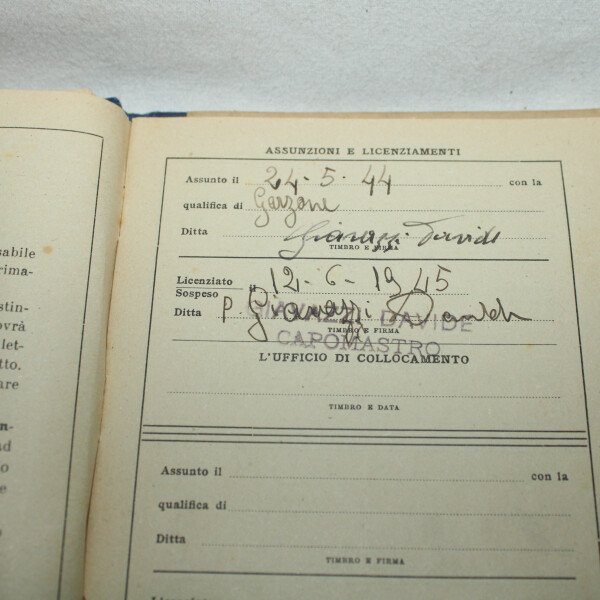 sabile
rima-
stin-
ovrà
let-
tto.
are
n-
ad
o
e
ASSUNZIONI E LICENZIAMENTI
Assunto il 24-5-44 con la
qualifica di Garzone
Ditta Giavazzi Davide
TIMBRO E FIRMA
Licenziato
Sospeso 12-6-1945
Ditta p Giavazzi
DAVIDE
TIMBRO E FIRMA
CAPOMASTRO
L'UFFICIO DI COLLOCAMENTO
TIMBRO E DATA
Assunto il con la
qualifica di
Ditta
TIMBRO E FIRMA